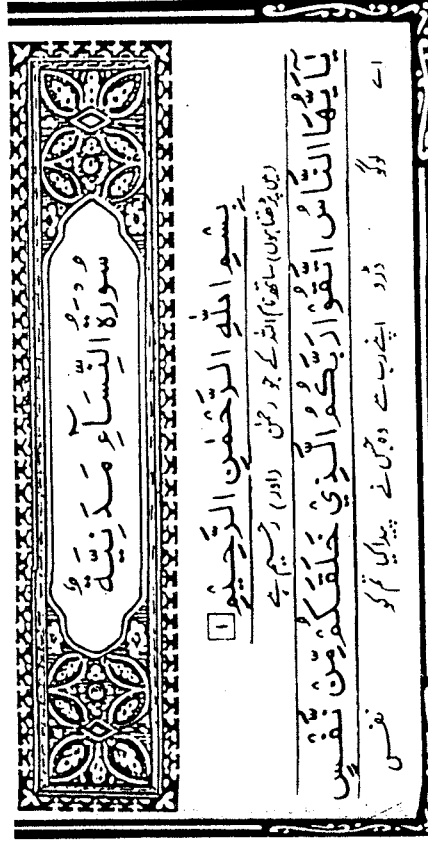 سُوۡرَةُ النِّسَآءِ مَدَنِيَّةٌ
بِسۡمِ اللّٰهِ الرَّحۡمٰنِ الرَّحِيۡمِ ۱
(میں پڑھتا ہوں) ساتھ نام اللہ کے جو رحمٰن (اور) رحیم ہے
يٰۤاَيُّهَا النَّاسُ اتَّقُوۡا رَبَّكُمُ الَّذِيۡ خَلَقَكُمۡ مِّنۡ نَّفۡسٍ
اے لوگو ڈرو اپنے رب سے وہ جس نے پیدا کیا تم کو نفس